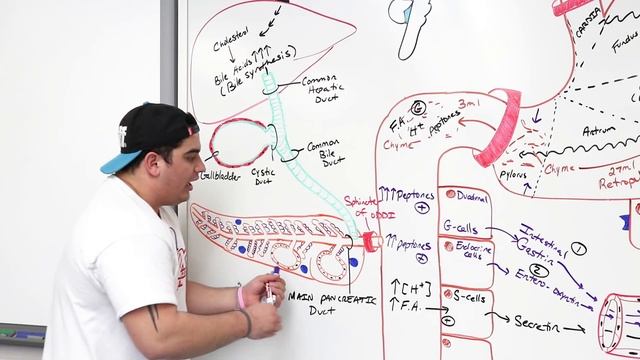 Cholesterol
Bile Acids ↑↑↑
(Bile synthesis)
Common
Hepatic
Duct
Common
Bile
Duct
Gallbladder
Cystic
Duct
Sphincter
of ODDI
MAIN PANCREATIC
Duct
CARDIA
Fundus
Antrum
Pylorus
Chyme
27ml
3ml
F.A.
H+
Peptones
Chyme
↑↑↑ Peptones
+
Duodenal
G-cells
Intestinal
Gastrin
1
↑↑ Peptones
+
Endocrine
cells
2
↑[H+]
↑F.A.
S-cells
+
Secretin